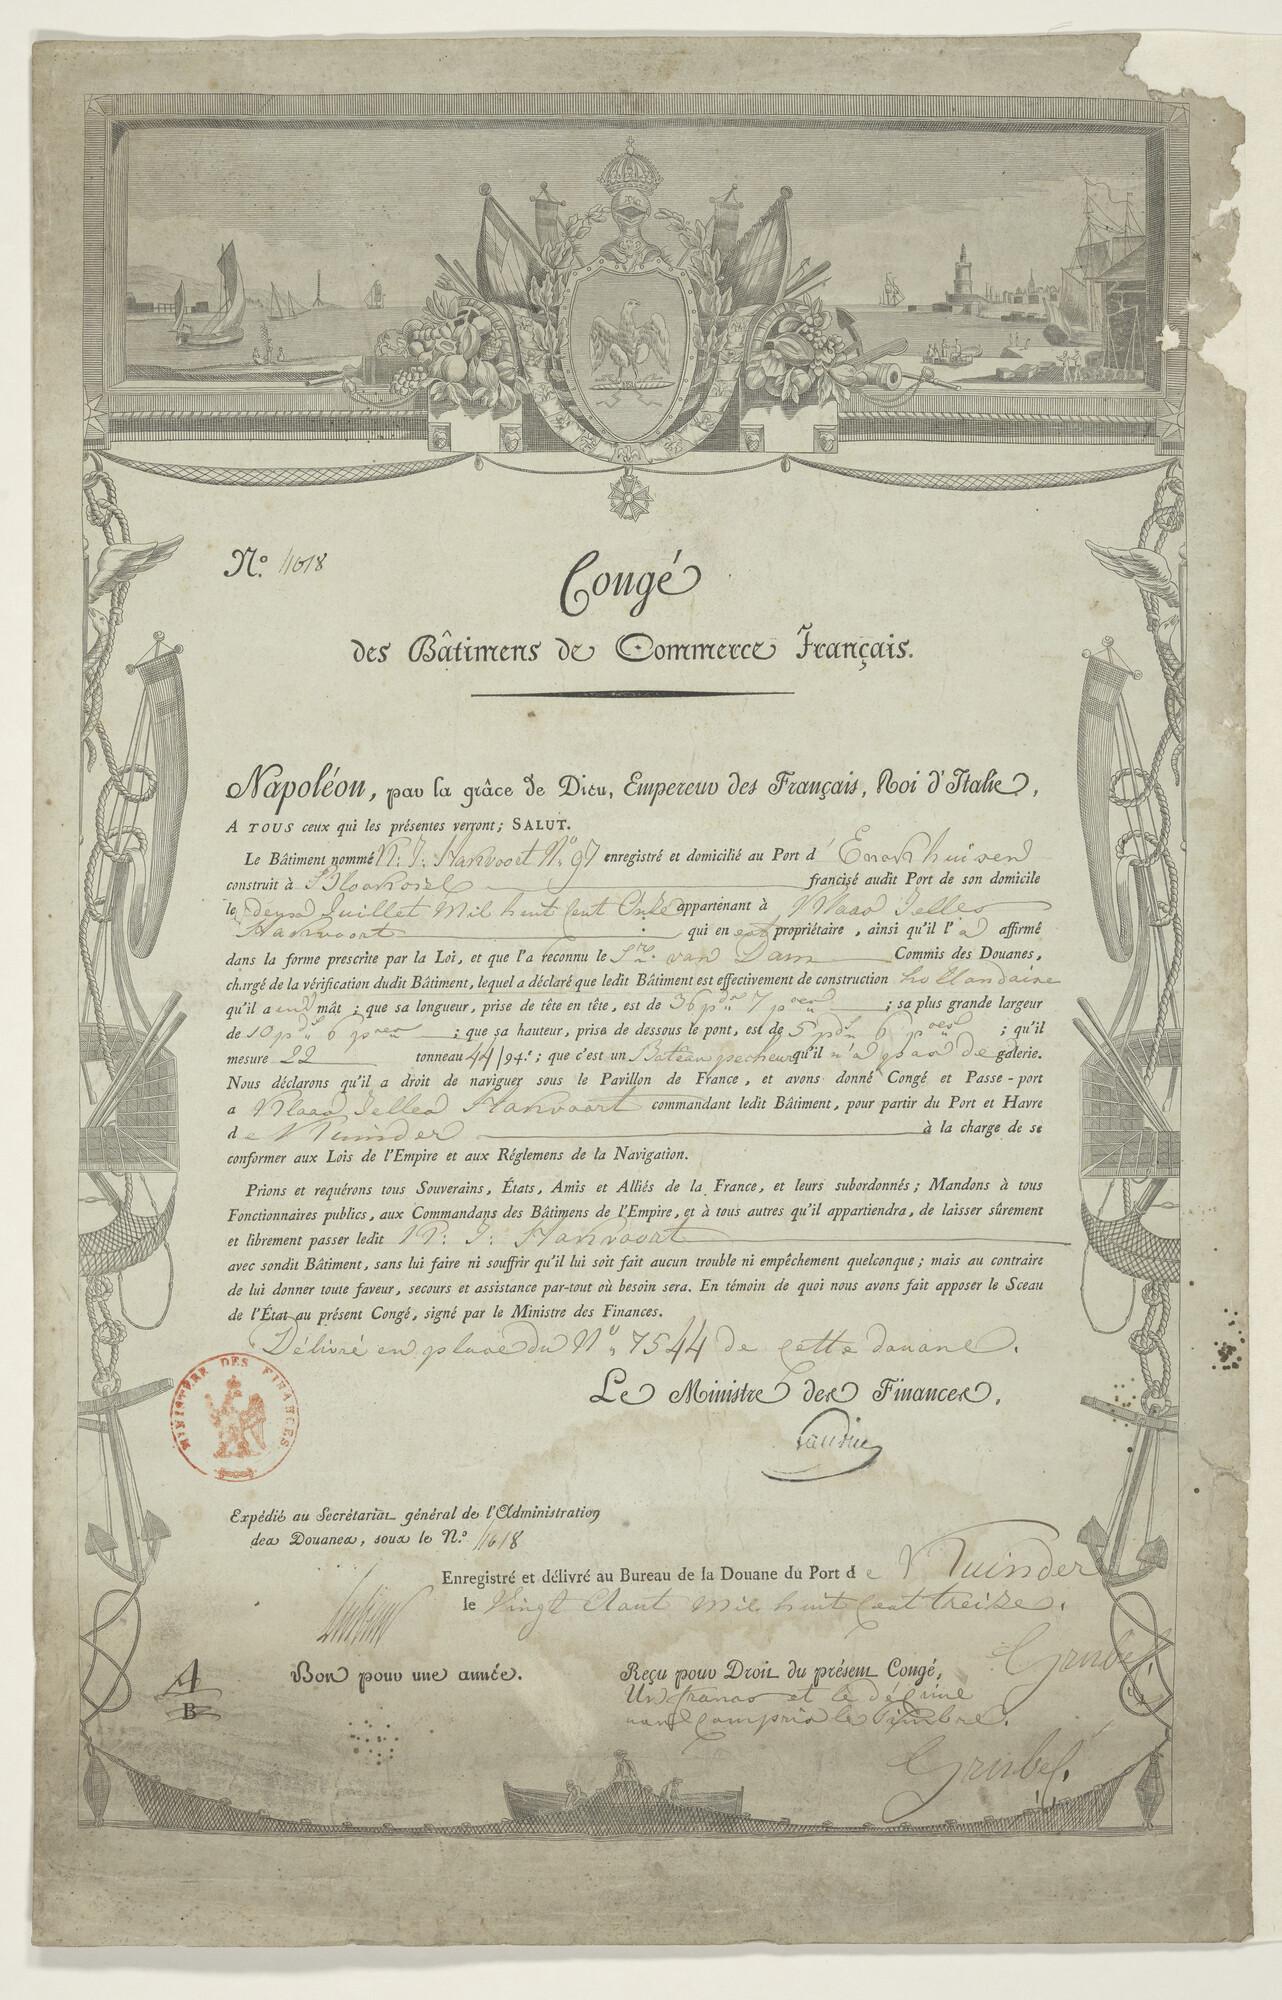 N.º 11618
Congé
des Bâtimens de Commerce Français.
Napoléon, par la grâce de Dieu, Empereur des Français, Roi d'Italie,
A TOUS ceux qui les présentes verront; SALUT.
Le Bâtiment nommé K: J: Hakvoort Nº 97 enregistré et domicilié au Port d'Enckhuisen
construit à francisé audit Port de son domicile
le deux Juillet Mil huit Cent Onze appartenant à Klaas Jelles
Hakvoort qui en est propriétaire, ainsi qu'il l'a affirmé
dans la forme prescrite par la Loi, et que l'a reconnu le Sr. van Dam Commis des Douanes,
chargé de la vérification dudit Bâtiment, lequel a déclaré que ledit Bâtiment est effectivement de construction hollandaise
qu'il a un mât; que sa longueur, prise de tête en tête, est de 36 pds 7 pces; sa plus grande largeur
de 10 pds 6 pces; que sa hauteur, prise de dessous le pont, est de 5 pds 6 pces; qu'il
mesure 22 tonneau 44/94.e; que c'est un Bateau pecheur qu'il n'a pas de galerie.
Nous déclarons qu'il a droit de naviguer sous le Pavillon de France, et avons donné Congé et Passe-port
a Klaas Jelles Hakvoort commandant ledit Bâtiment, pour partir du Port et Havre
de Kuinder à la charge de se
conformer aux Lois de l'Empire et aux Réglemens de la Navigation.
Prions et requérons tous Souverains, États, Amis et Alliés de la France, et leurs subordonnés; Mandons à tous
Fonctionnaires publics, aux Commandans des Bâtimens de l'Empire, et à tous autres qu'il appartiendra, de laisser sûrement
et librement passer ledit K: J: Hakvoort
avec sondit Bâtiment, sans lui faire ni souffrir qu'il lui soit fait aucun trouble ni empêchement quelconque; mais au contraire
de lui donner toute faveur, secours et assistance par-tout où besoin sera. En témoin de quoi nous avons fait apposer le Sceau
de l'État au présent Congé, signé par le Ministre des Finances.
Délivré en place du Nº 7544 de cette douane.
MINISTÈRE DES FINANCES
Le Ministre des Finances,
Expédié au Secrétariat général de l'Administration
des Douanes, sous le N.º 11618
Enregistré et délivré au Bureau de la Douane du Port de Kuinder
le Vingt Aout Mil huit Cent treize.
Bon pour une année.
Reçu pour Droit du présent Congé,
Un franc et le décime
non compris le timbre.
A
B